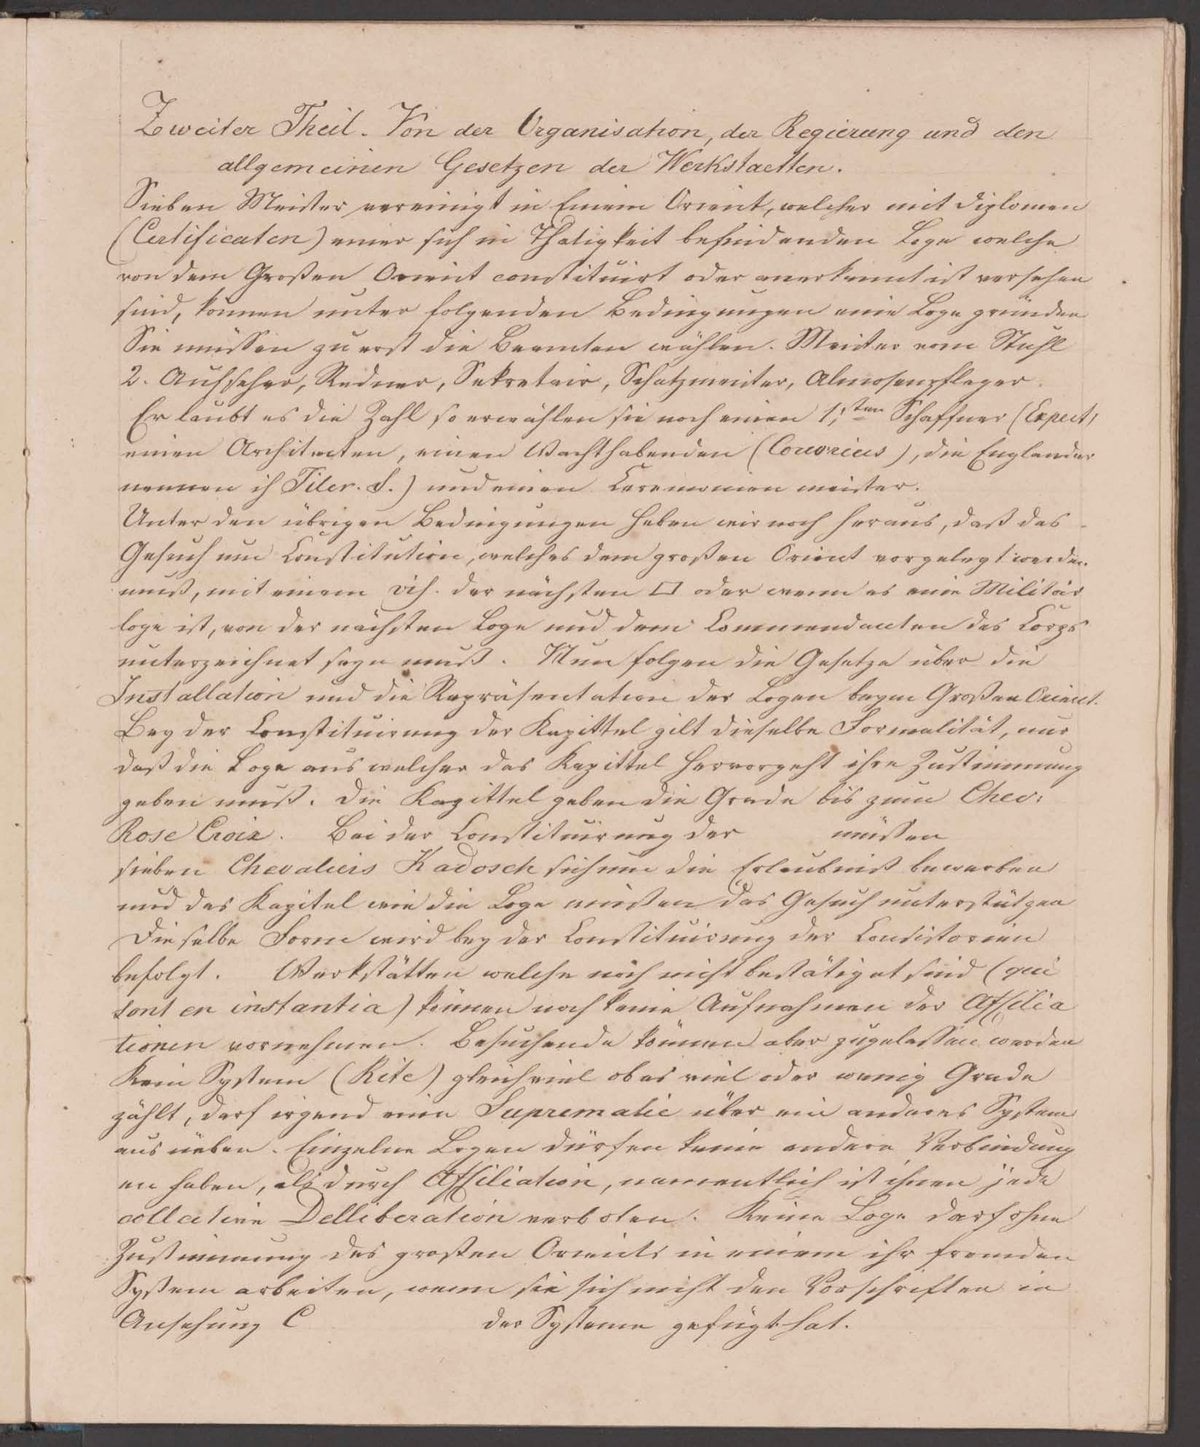 Zweiter Theil. Von der Organisation, der Regierung und den
allgemeinen Gesetzen der Werkstaetten.
Sieben Meister vereinigt in Einem Orient, welcher mit Diplomen
(Certificaten) einer sich in Thätigkeit befindenden Loge welche
von dem Großen Orient constituirt oder anerkannt ist versehen
sind, können unter folgenden Bedingungen eine Loge gründen
Sie müssen zu erst die Beamten wählen. Meister vom Stuhl
2. Aufseher, Redner, Sekretair, Schatzmeister, Almosenpfleger.
Erlaubt es die Zahl so erwählen sie noch einen 1,sten Schaffner (Expert,
einen Architecten, einen Wachthabenden (Couvrieus), die Englander
nennen ih Tiler. S.) und einen Ceremonien meister.
Unter den übrigen Bedingungen heben wir noch heraus, daß das
Gesuch um Constitution, welches dem großen Orient vorgelegt werden
muß, mit einem der nächsten □ oder wenn es eine Militär
loge ist, von der nächsten Loge und dem Commandanten des Corps
unterzeichnet seyn muß. Nun folgen die Gesetze über die
Installation und die Repräsentation der Logen beym Großen Orient.
Bey der Constituirung der Kapittel gilt dieselbe Formalität, nur
daß die Loge aus welcher das Kapittel hervorgeht ihre Zustimmung
geben muß. Die Kapittel geben die Grade bis zum Chev.
Rose Croix. Bei der Constituirung der müssen
sieben Chevaliers Kadosch sich um die Erlaubniß bewerben
und das Kapitel wie die Loge müssen das Gesuch unterstützen
Dieselbe Form wird bey der Constituirung der Consistorien
befolgt. Werkstätten welche noch nicht bestätiget sind (qui
sont en instantia) können noch keine Aufnahmen der Affilia
tionen vornehmen. Besuchende können aber zugelassen werden
Kein System (Rite) gleichviel ob es viel oder wenig Grade
zählt, darf irgend eine Suprematie über ein anderes System
aus üeben. Einzelne Logen dürfen keine andere Verbindung
en haben, als durch Affiliation, namentlich ist ihnen jede
collective Delliberation verboten. Keine Loge darf ohne
Zustimmung des großen Orients in einem ihr fremden
System arbeiten, wenn sie sich nicht den Vorschriften in
Ansehung C der Systeme gefügt hat.